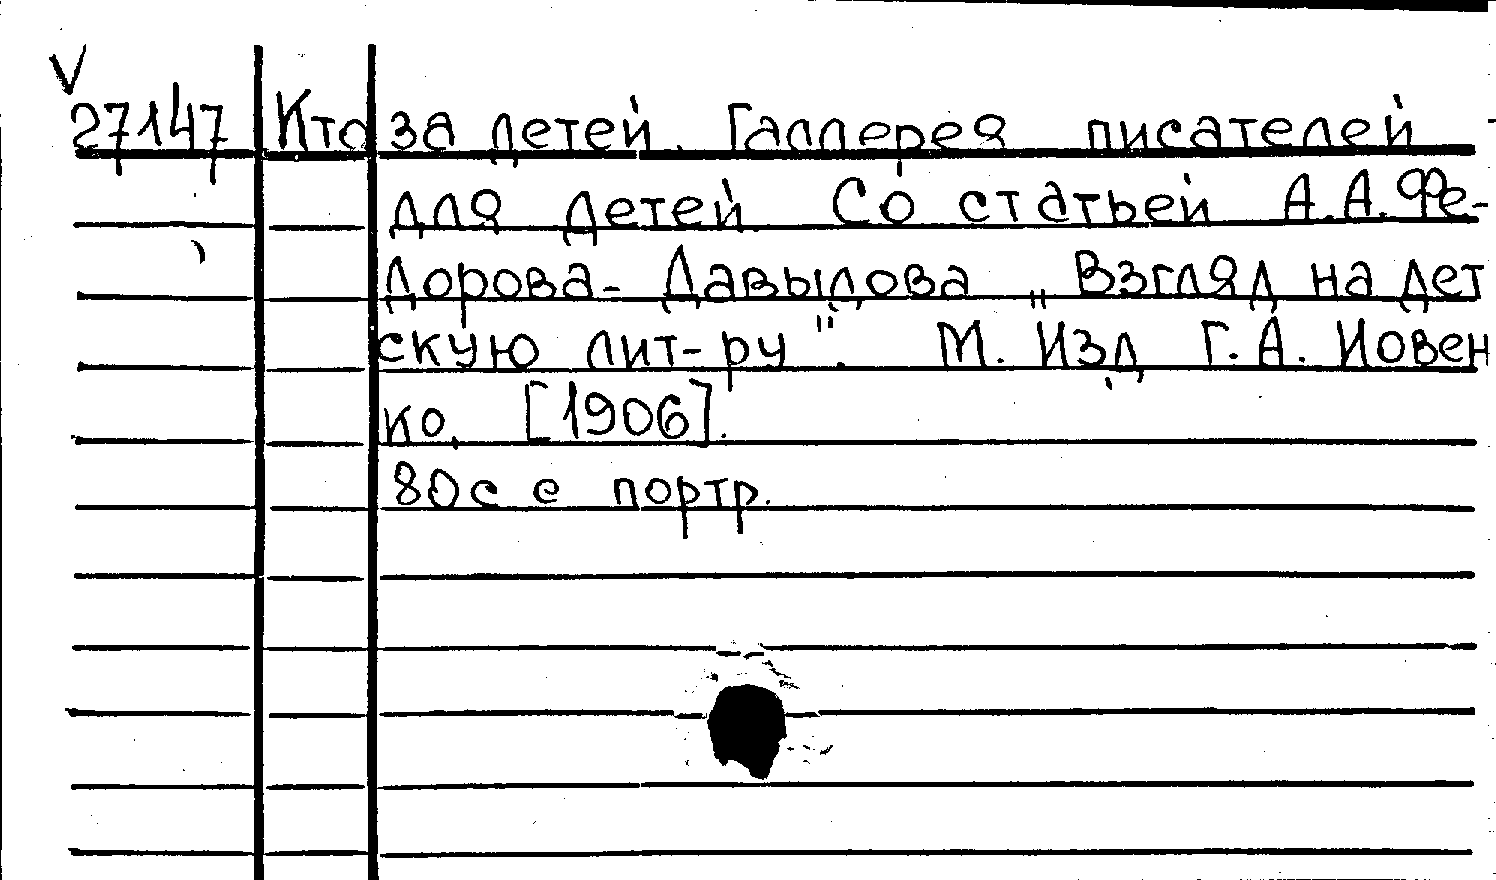 V
27147 Кто за детей. Галлерея писателей
для детей Со статьей А.А.Фе-
дорова-Давыдова „Взгляд на дет
скую лит-ру". М. Изд. Г.А. Иовен
ко, [1906].
80с с портр.